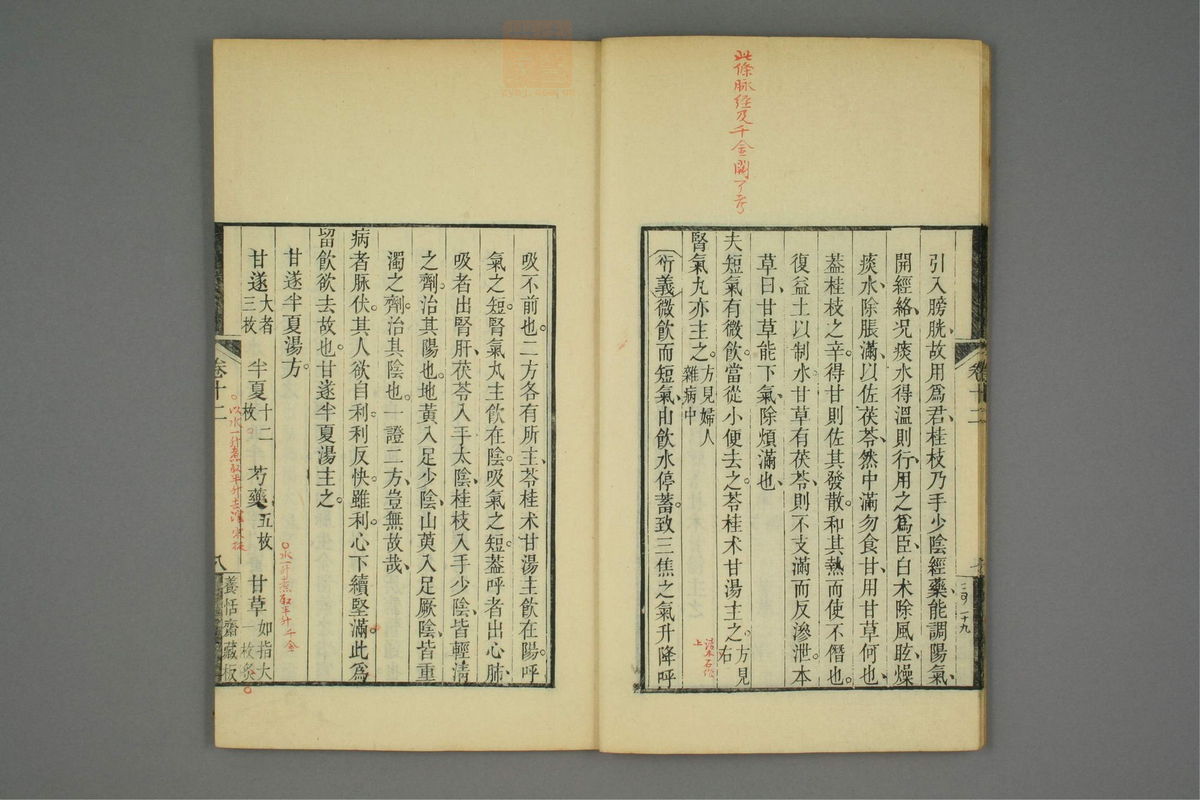 此條脉經及千金闕了考
引入膀胱故用爲君桂枝乃手少陰經藥能調陽氣
開經絡况痰水得溫則行用之爲臣白术除風眩燥
痰水除脹滿以佐茯苓然中滿勿食甘用甘草何也
葢桂枝之辛得甘則佐其發散和其熱而使不僭也
復益土以制水甘草有茯苓則不支滿而反滲泄本
草曰甘草能下氣除煩滿也
夫短氣有微飲當從小便去之苓桂术甘湯主之方見右
腎氣丸亦主之方見婦人雜病中
衍義微飲而短氣由飲水停蓄致三焦之氣升降呼
卷十二
吸不前也二方各有所主苓桂术甘湯主飲在陽呼
氣之短腎氣丸主飲在陰吸氣之短葢呼者出心肺
吸者出腎肝茯苓入手太陰桂枝入手少陰皆輕淸
之劑治其陽也地黃入足少陰山萸入足厥陰皆重
濁之劑治其陰也一證二方豈無故哉
病者脉伏其人欲自利利反快雖利心下續堅滿此爲
留飲欲去故也甘遂半夏湯主之
甘遂半夏湯方
水一升煮取半升千金
甘遂大者三枚 半夏十二枚 芍藥五枚 甘草如指大一枚炙
以水一升煮取半升去滓
卷十二 八 養恬齋藏板